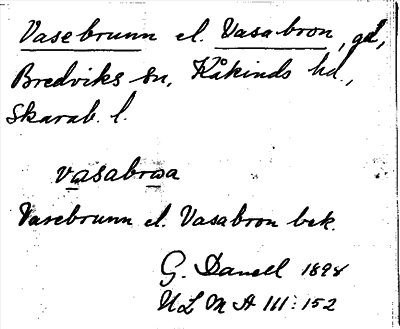 Vasebrunn el. Vasabron, gd,
Bredviks sn, Kåkinds hd.,
Skarab. l.
vasabrωa
Vasebrunn el. Vasabron bek.
G. Danell 1898
ULMA 111:152